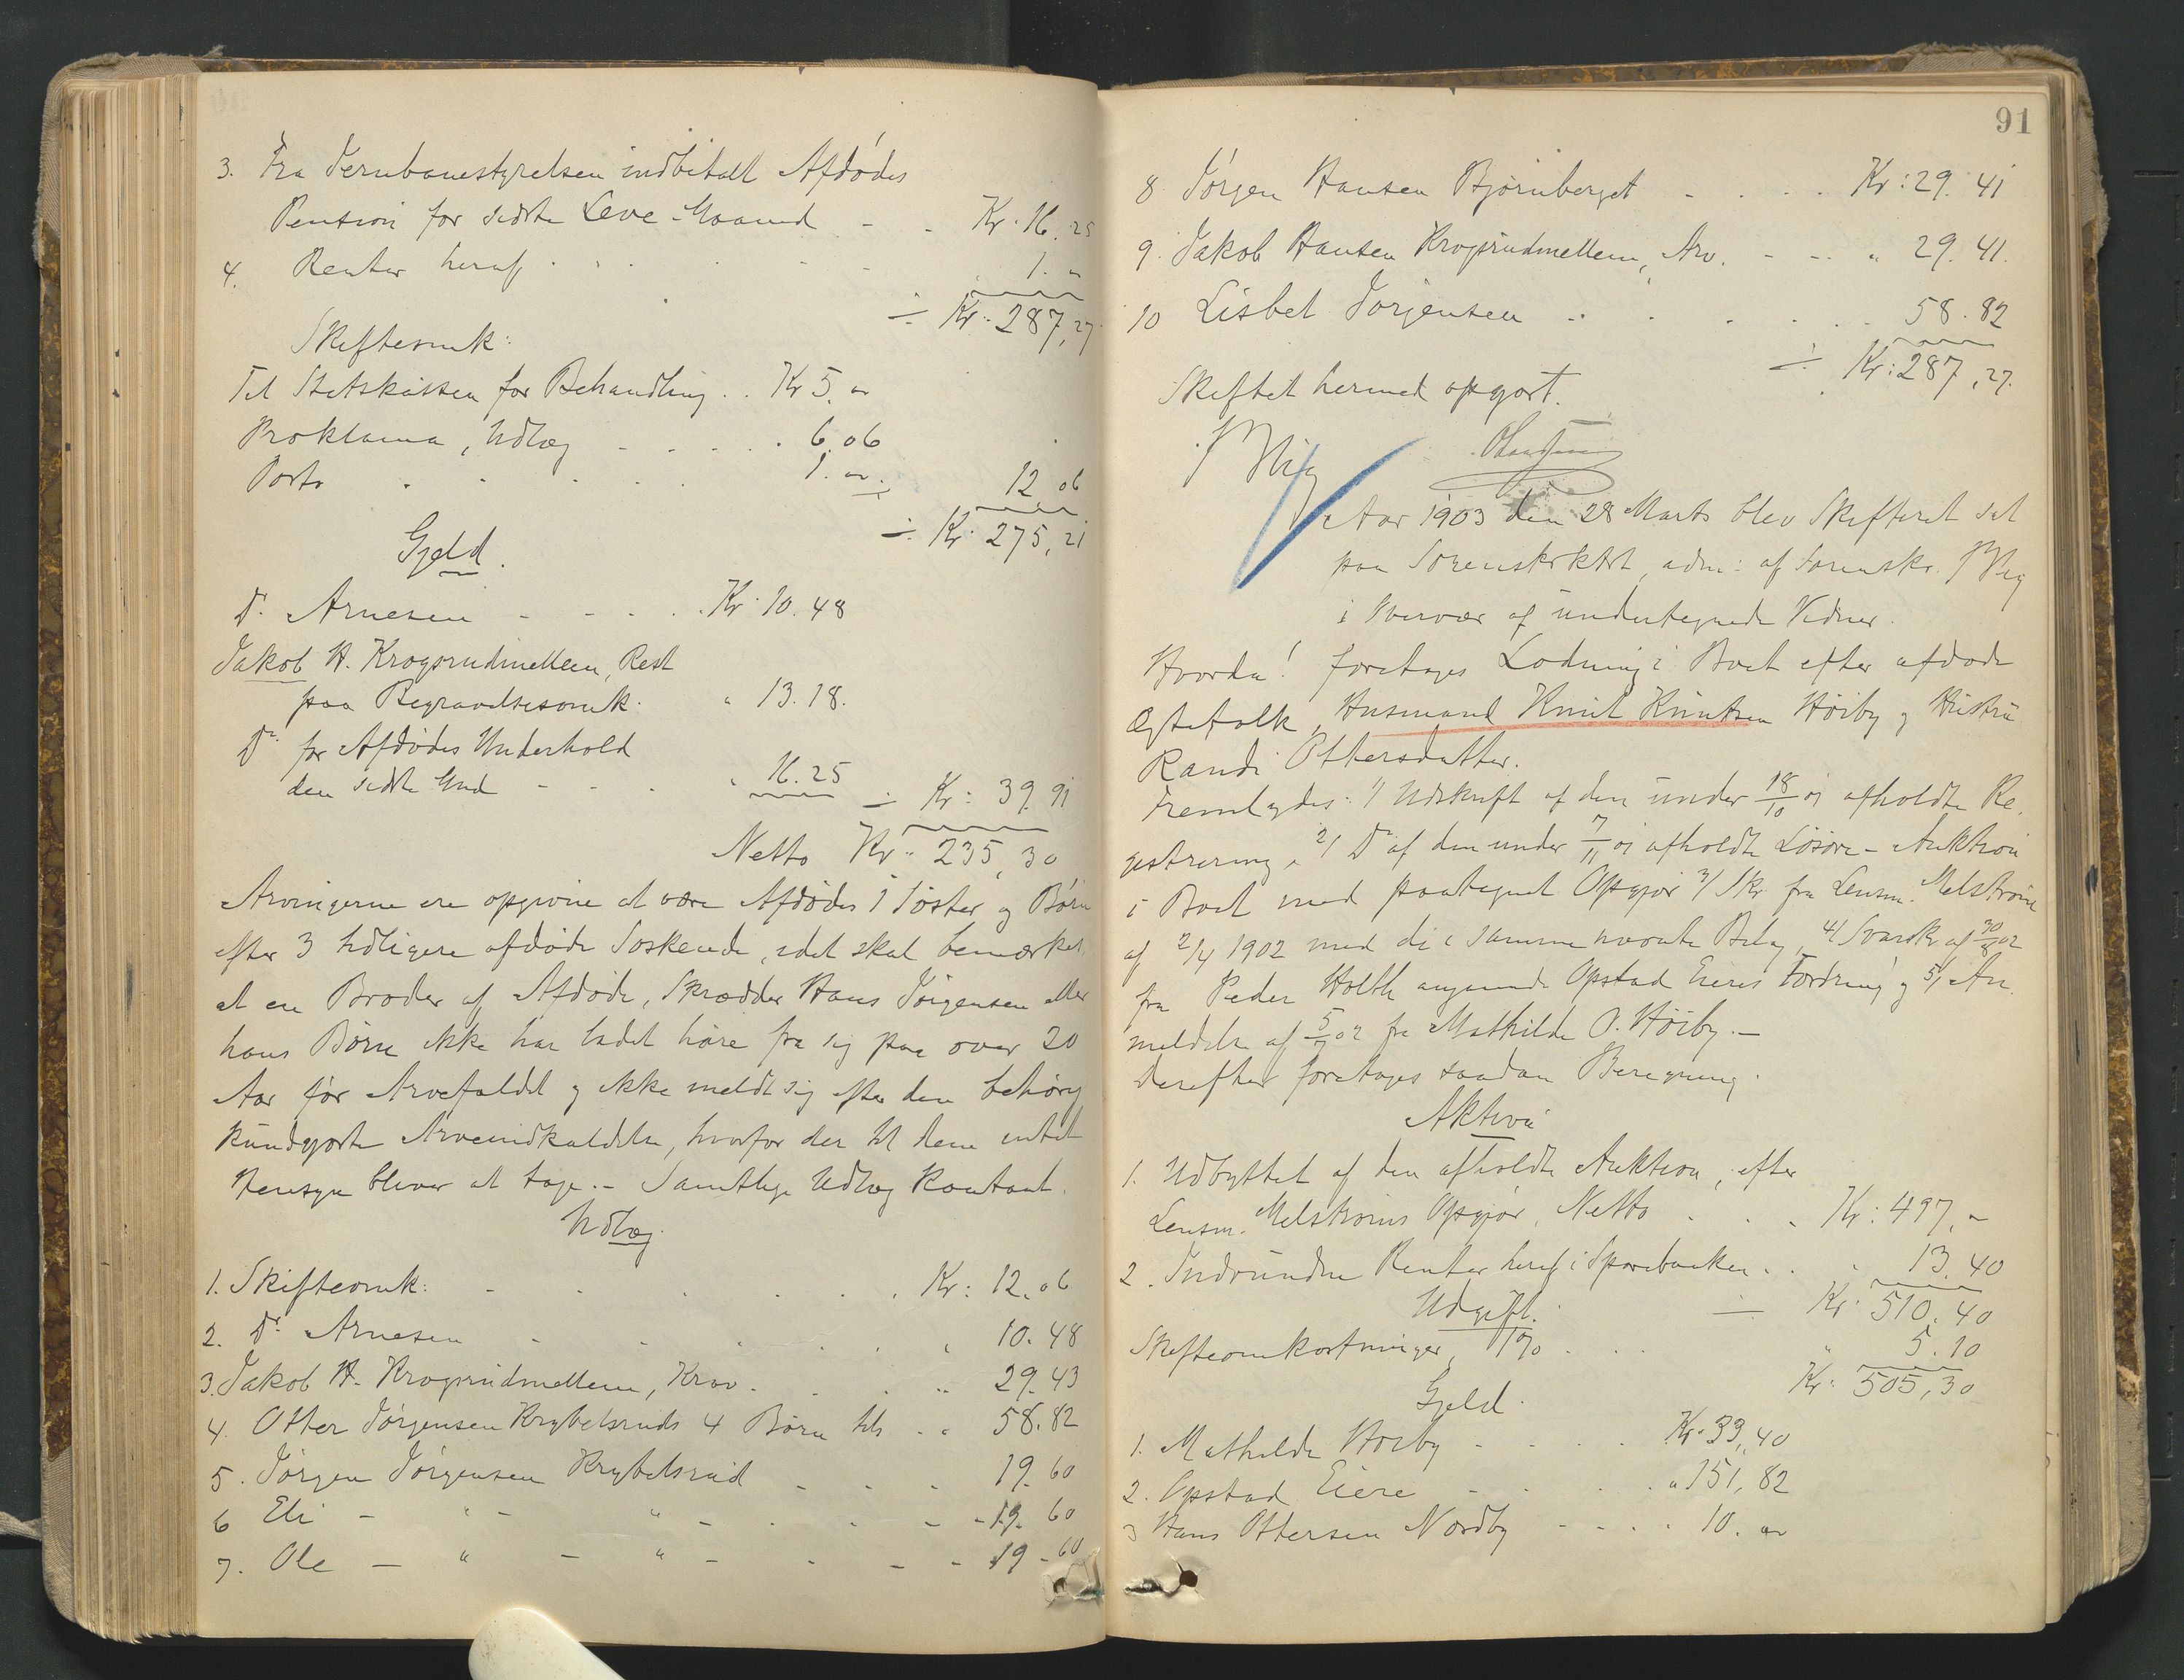 3. Fra Jernbanestyrelsen indbetalt Afdødes
Pension for sidste Leve-Maaned - - Kr. 16.25
4. Renter heraf . . . - - 1. "
÷ Kr. 287,27
Skifteomk:
Til Statskassen for Behandling . . Kr 5. "
Proklama, Udlæg - - . . . 6.06
Porto . . . . . 1. " 12,06
÷ Kr. 275,21
Gjeld.
Dr. Arnesen - - - . . Kr. 10.48
Jakob H. Krogsrudmellem, Rest
paa Begravelsesomk. " 13.18.
Do for Afdødes Underhold
den sidste Mnd - - . " 16.25 ÷ Kr: 39.91
Netto Kr. 235,30
Arvingerne ere opgivne at være Afdødes 1 Søster og Børn
efter 3 tidligere afdøde Søskende, idet skal bemærkes,
at en Broder af Afdøde, Skrædder Hans Jørgensen eller
hans Børn ikke har ladet høre fra sig paa over 20
Aar før Arvefaldet og ikke meldt sig efter den behørig
kundgjorte Arveindkaldelse, hvorfor der til dem intet
Hensyn bliver at tage. - Samtlige Udlæg kontant.
Udlæg.
1. Skifteomk: - . . . . Kr: 12.06
2. Dr. Arnesen - - . . " 10.48
3. Jakob H. Krogsrudmellem, Krav. . . " 29.43
4. Otter Jørgensen Krybelsruds 4 Børn tils . " 58.82
5. Jørgen Jørgensen Krybelsrud - - - 19.60
6 Eli - " - " - . . - - 19. 60
7. Ole - " - " - - - - 19 - 60
91
8 Jørgen Hansen Bjørnberget - . . . Kr: 29.41
9. Jakob Hansen Krogsrudmellem, Arv. - - - " 29.41.
10 Lisbet Jørgensen - . . . . 58.82
÷ Kr: 287,27.
Skiftet hermed opgjort.
Aar 1903 den 28 Marts blev Skifteret sat
paa Sorenskrktrt, adm: af Sorenskr.
i Overvær af undertegnede Vidner.
Hvorda! foretages Lodning i Boet efter afdøde
Ægtefolk, Husmand Knut Knutsen Høiby og Hustru
Randi Ottersdatter.
Fremlagdes: 1/ Udskrift af den under 18/10 01 afholdte Re-
gistrering, 2/ Do af den under 7/11 01 afholdte Løsøre-Auktion
i Boet med paategnet Opgjør 3/ Skr. fra Lensm. Melstrøm
af 2/4 1902 med de i samme nævnte Bilag, 4/ Svarskr. af 30/8 02
fra Peder Holth angaaende Opstad Eieres Fordring og 5/ An-
meldelse af 5/7 02 fra Mathilde O. Høiby. -
Derefter foretages saadan Beregning.
Aktiva
1. Udbyttet af den afholdte Auktion, efter
Lensm. Melstrøms Opgjør, Netto . . . Kr: 497, -
2. Indvundne Renter heraf i Sparebanken . . " 13.40
÷ Kr. 510.40
Udgift.
Skifteomkostninger, 1% . . . " 5.10
Kr: 505,30
Gjeld.
1. Mathilde Høiby - . . . Kr. 33,40
2. Opstad Eiere - . . . " 151,82
3 Hans Ottersen Nordby - - . . 10. "